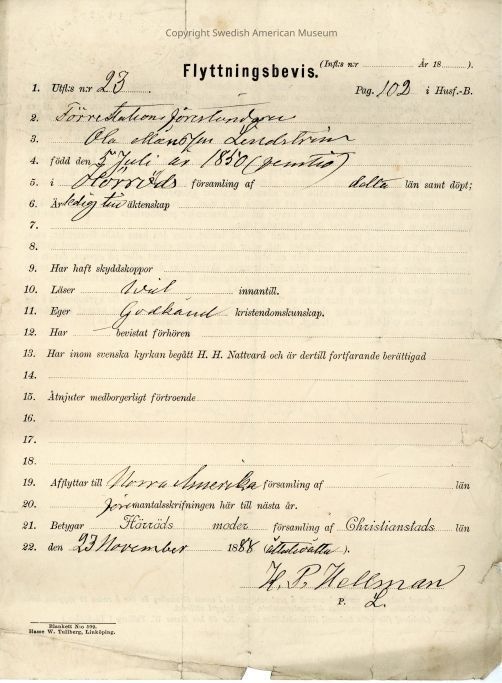 Copyright Swedish American Museum
Flyttningsbevis.
(Infl:s n:r År 18 ).
1. Utfl:s n:r 23 Pag. 102 i Husf.-B.
2. Förre Stations
3. Ola Månsson Lindström
4. född den 5 Juli år 1850 (femtio)
5. i Hörröds församling af detta län samt döpt;
6. Är ledig till äktenskap
7.
8.
9. Har haft skyddskoppor
10. Läser väl innantill.
11. Eger Godkänd kristendomskunskap.
12. Har bevistat förhören
13. Har inom svenska kyrkan begått H. H. Nattvard och är dertill fortfarande berättigad
14.
15. Åtnjuter medborgerligt förtroende
16.
17.
18.
19. Afflyttar till Norra Amerika församling af län
20. före mantalsskrifningen här till nästa år.
21. Betygar Hörröds moder församling af Christianstads län
22. den 23 November 1888 (åttatioåtta).
H. P. Hellman
P. L.
Blankett N:o 109.
Hasse W. Tullberg, Linköping.